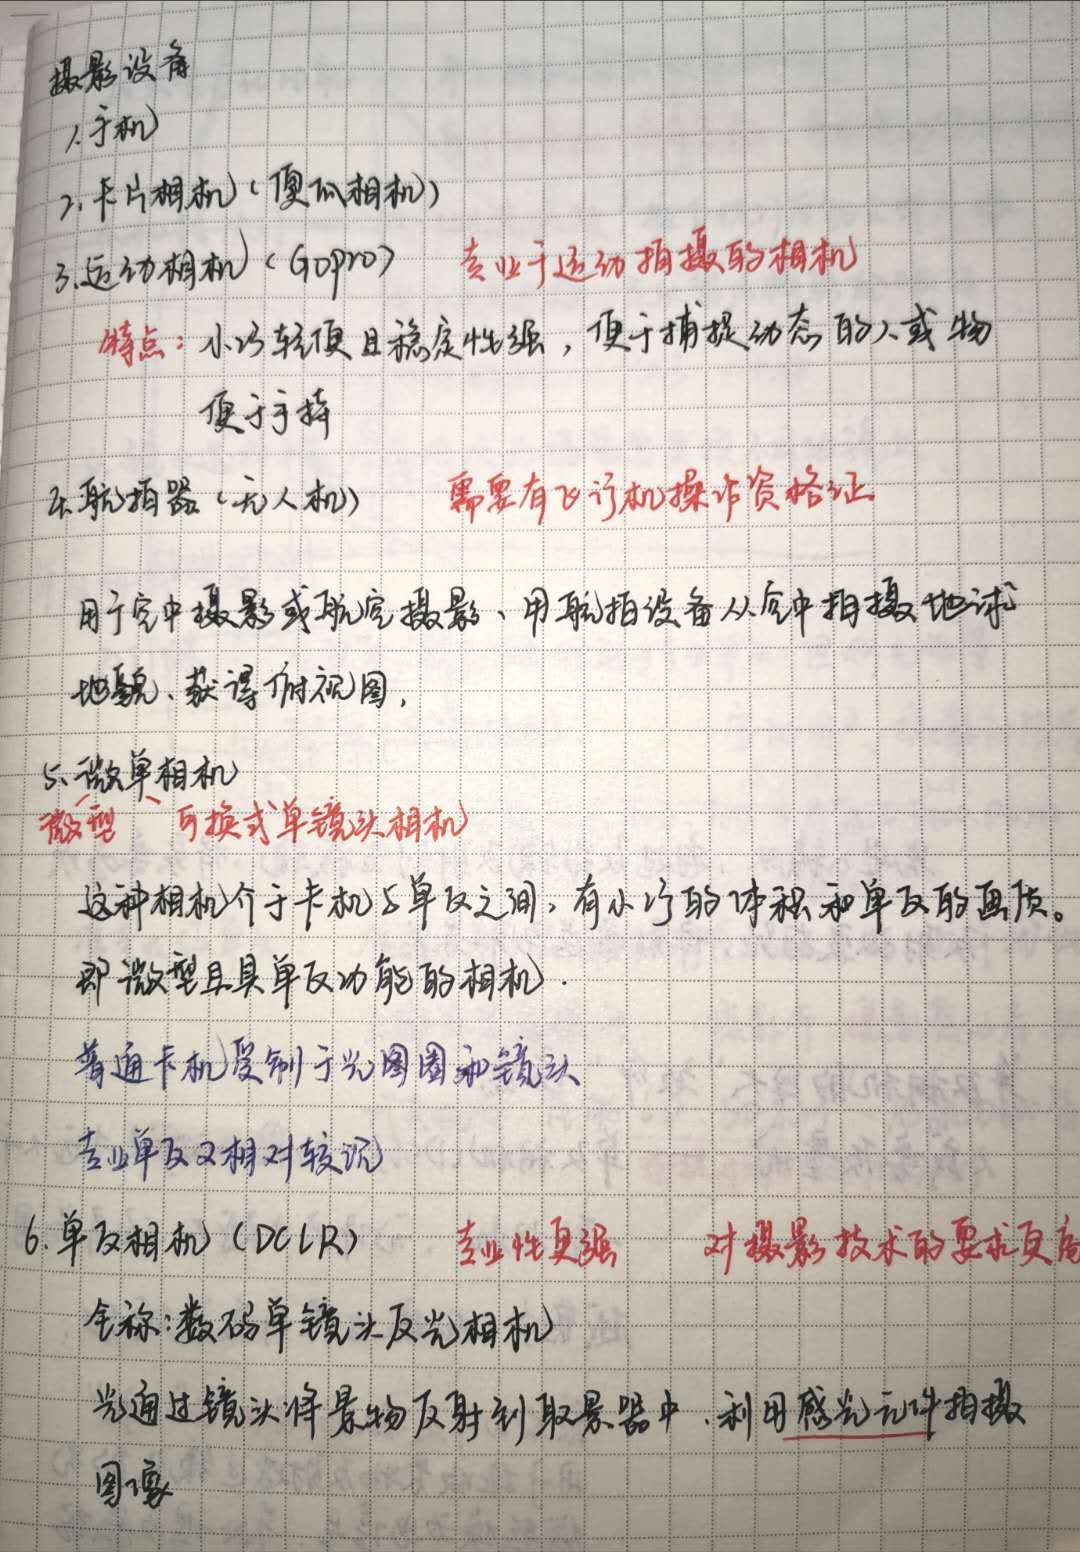 摄影设备
1.手机
2.卡片相机(便瓜相机)
3.运动相机(Gopro) 专业于运动拍摄的相机
特点：小巧轻便且稳定性强，便于捕捉动态的人或物
便于手持
4.航拍器(无人机) 需要有飞行机操作资格证
用于空中摄影或航空摄影、用航拍设备从空中拍摄地球
地貌、获得俯视图，
5.微单相机
微型 可换式单镜头相机
这种相机介于卡机与单反之间，有小巧的体积和单反的画质。
即微型且具单反功能的相机.
普通卡机受制于光图圈和镜头
专业单反又相对较沉
6.单反相机(DCLR) 专业性更强 对摄影技术的要求更高
全称:数码单镜头反光相机
光通过镜头将景物反射到取景器中、利用感光元件拍摄
图像